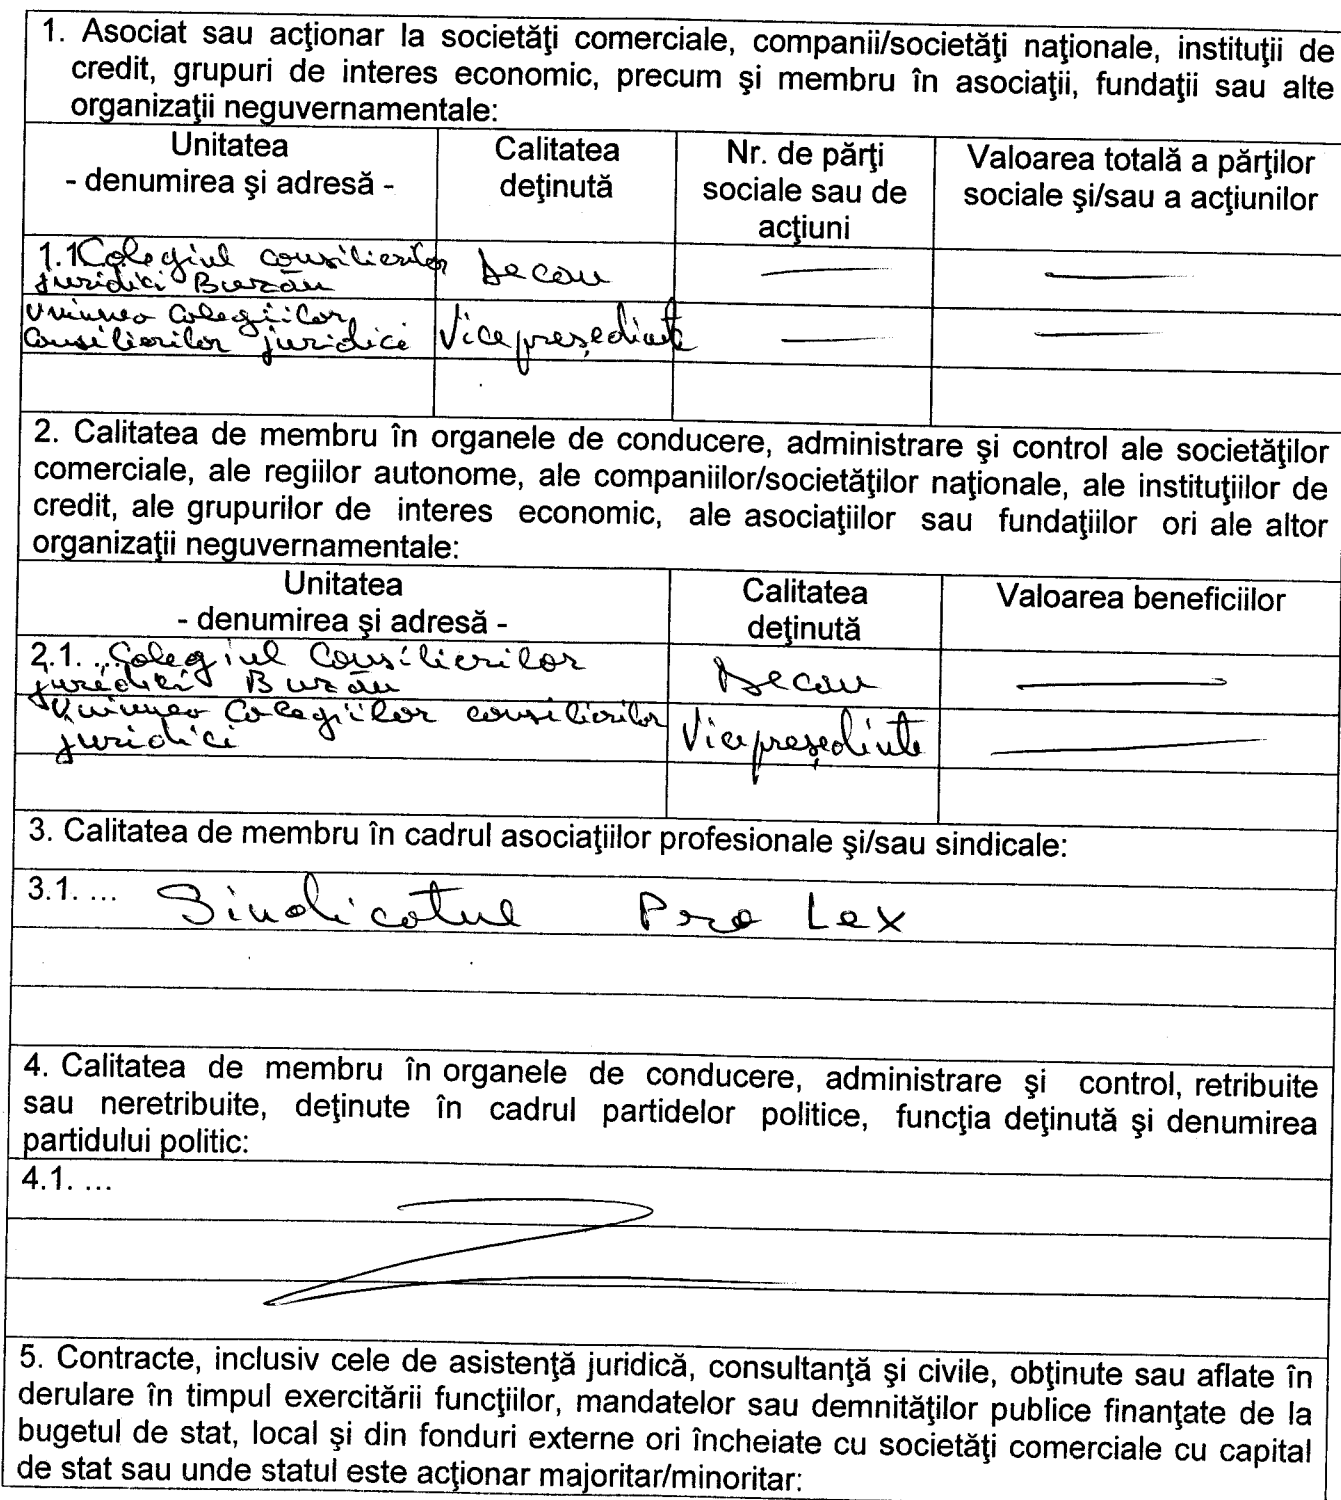 1. Asociat sau acţionar la societăţi comerciale, companii/societăţi naţionale, instituţii de
credit, grupuri de interes economic, precum şi membru în asociaţii, fundaţii sau alte
organizaţii neguvernamentale:
Unitatea
- denumirea şi adresă -
Calitatea
deţinută
Nr. de părţi
sociale sau de
acţiuni
Valoarea totală a părţilor
sociale şi/sau a acţiunilor
1.1 Colegiul consilierilor
juridici Buzău
Decan
Uniunea Colegiilor
Consilierilor juridici
Vicepreşedinte
2. Calitatea de membru în organele de conducere, administrare şi control ale societăţilor
comerciale, ale regiilor autonome, ale companiilor/societăţilor naţionale, ale instituţiilor de
credit, ale grupurilor de interes economic, ale asociaţiilor sau fundaţiilor ori ale altor
organizaţii neguvernamentale:
Unitatea
- denumirea şi adresă -
Calitatea
deţinută
Valoarea beneficiilor
2.1. ..Colegiul Consilierilor
juridici Buzău
Decan
Uniunea Colegiilor consilierilor
juridici
Vicepreşedinte
3. Calitatea de membru în cadrul asociaţiilor profesionale şi/sau sindicale:
3.1. ... Sindicatul Pro Lex
4. Calitatea de membru în organele de conducere, administrare şi control, retribuite
sau neretribuite, deţinute în cadrul partidelor politice, funcţia deţinută şi denumirea
partidului politic:
4.1. ...
5. Contracte, inclusiv cele de asistenţă juridică, consultanţă şi civile, obţinute sau aflate în
derulare în timpul exercitării funcţiilor, mandatelor sau demnităţilor publice finanţate de la
bugetul de stat, local şi din fonduri externe ori încheiate cu societăţi comerciale cu capital
de stat sau unde statul este acţionar majoritar/minoritar: